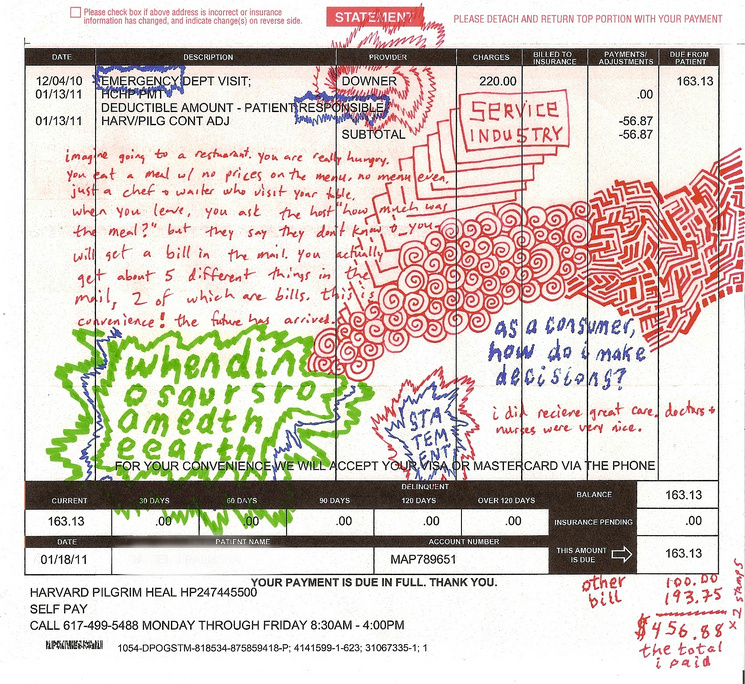 Please check box if above address is incorrect or insurance
information has changed, and indicate change(s) on reverse side.
STATEMENT
PLEASE DETACH AND RETURN TOP PORTION WITH YOUR PAYMENT
DATE DESCRIPTION PROVIDER CHARGES BILLED TO INSURANCE PAYMENTS/ ADJUSTMENTS DUE FROM PATIENT
12/04/10 EMERGENCY DEPT VISIT; DOWNER 220.00 163.13
01/13/11 HCHP PMT .00
DEDUCTIBLE AMOUNT - PATIENT RESPONSIBLE
01/13/11 HARV/PILG CONT ADJ -56.87
SUBTOTAL -56.87
SERVICE
INDUSTRY
imagine going to a restuarant. you are really hungry.
you eat a meal w/ no prices on the menu, no menu even,
just a chef + waiter who visit your table.
when you leave, you ask the host "how much was
the meal?" but they say they don't know & you
will get a bill in the mail. you actually
get about 5 different things in the
mail, 2 of which are bills. this is
convenience! the future has arrived.
as a consumer,
how do i make
decisions?
i did recieve great care. doctors +
nurses were very nice.
whendin
osaursro
amedth
eearth
STA
TEM
ENT
FOR YOUR CONVENIENCE WE WILL ACCEPT YOUR VISA OR MASTERCARD VIA THE PHONE
DELINQUENT
CURRENT 30 DAYS 60 DAYS 90 DAYS 120 DAYS OVER 120 DAYS BALANCE 163.13
163.13 .00 .00 .00 .00 .00 INSURANCE PENDING .00
DATE PATIENT NAME ACCOUNT NUMBER THIS AMOUNT IS DUE 163.13
01/18/11 MAP789651
YOUR PAYMENT IS DUE IN FULL. THANK YOU.
HARVARD PILGRIM HEAL HP247445500
SELF PAY
CALL 617-499-5488 MONDAY THROUGH FRIDAY 8:30AM - 4:00PM
1054-DPOGSTM-818534-875859418-P; 4141599-1-623; 31067335-1; 1
other
bill
100.00
193.75
$456.88
the total
i paid
x 2 stamps